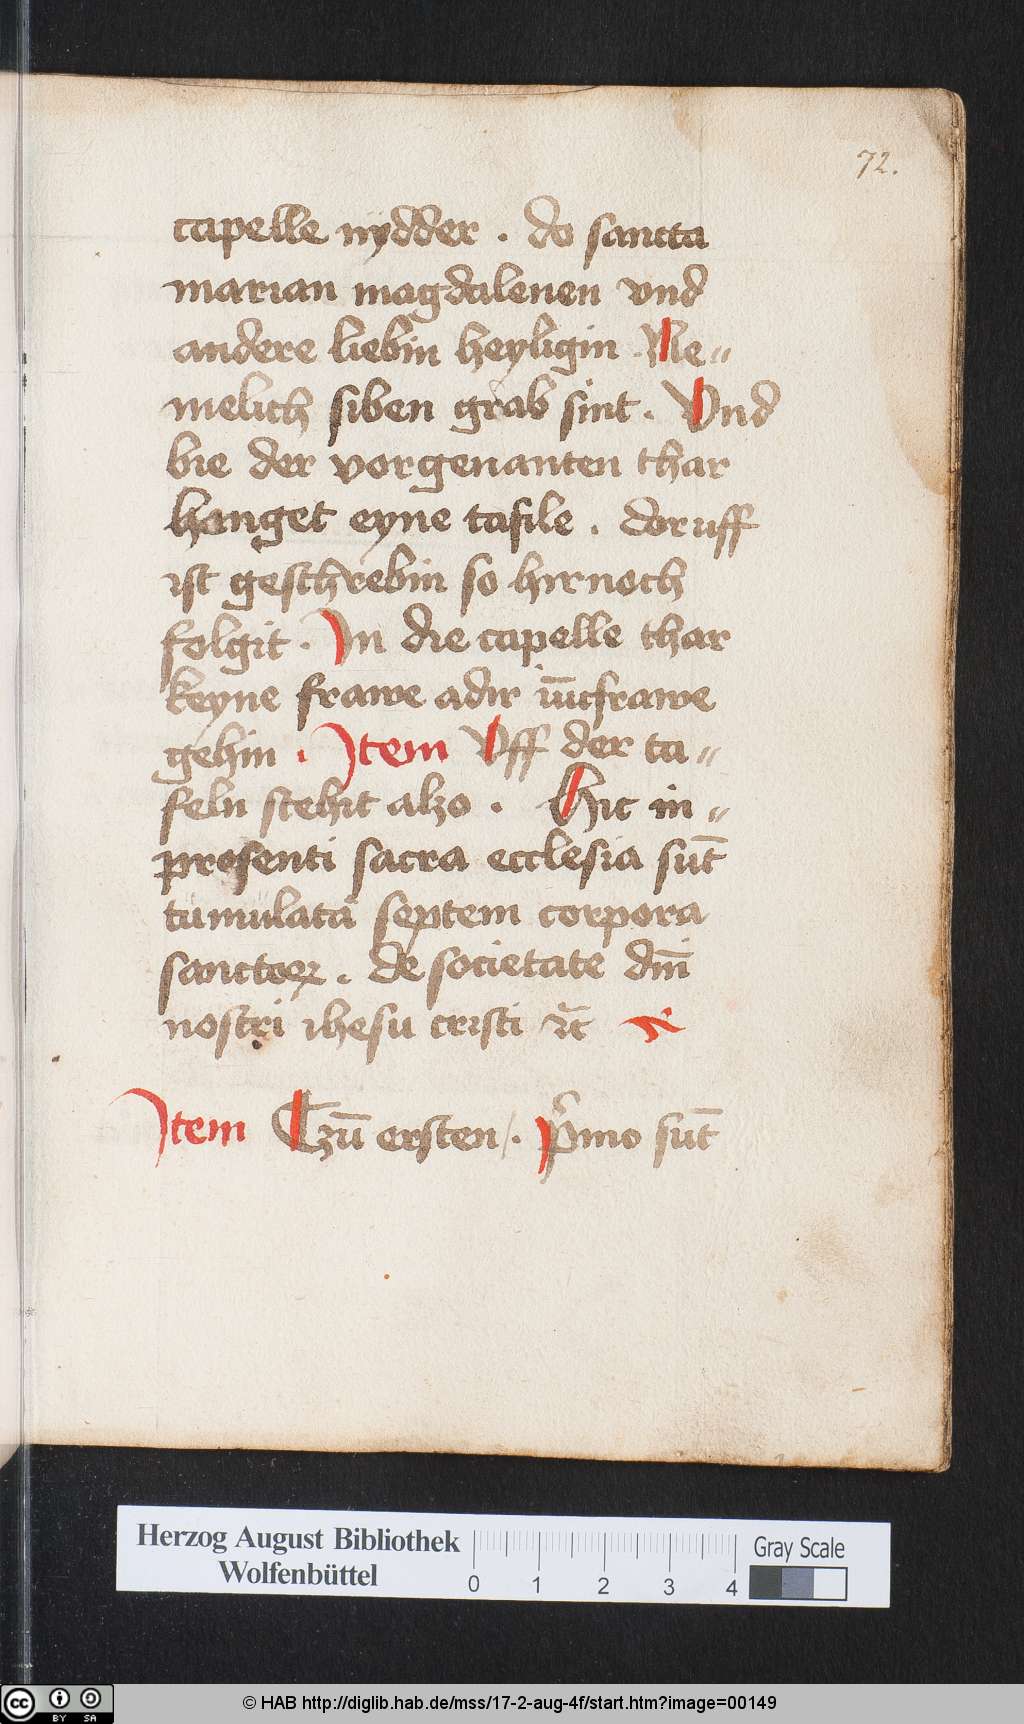 72.
capelle nydder . do sancta
marian magdalenen vnd
andere liebin heyligin . Ne⸗
melich siben grab sint . Vnd
bie der vorgenanten thar
hanget eyne tafile . dor uff
ist geschrebin so hirnoch
folgit . In die capelle thar
keyne frawe adir iūcfrawe
gehin . Item Vff der ta⸗
feln stehit alzo . Hic in⸗
presenti sacra ecclesia sūt
tumulata septem corpora
sanctoꝝ . de societate dn̄i
nostri ihesu cristi ꝛc̄
Item Czū ersten / . pͥmo sūt
Herzog August Bibliothek
Wolfenbüttel
0 1 2 3 4
Gray Scale
cc BY SA
© HAB http://diglib.hab.de/mss/17-2-aug-4f/start.htm?image=00149